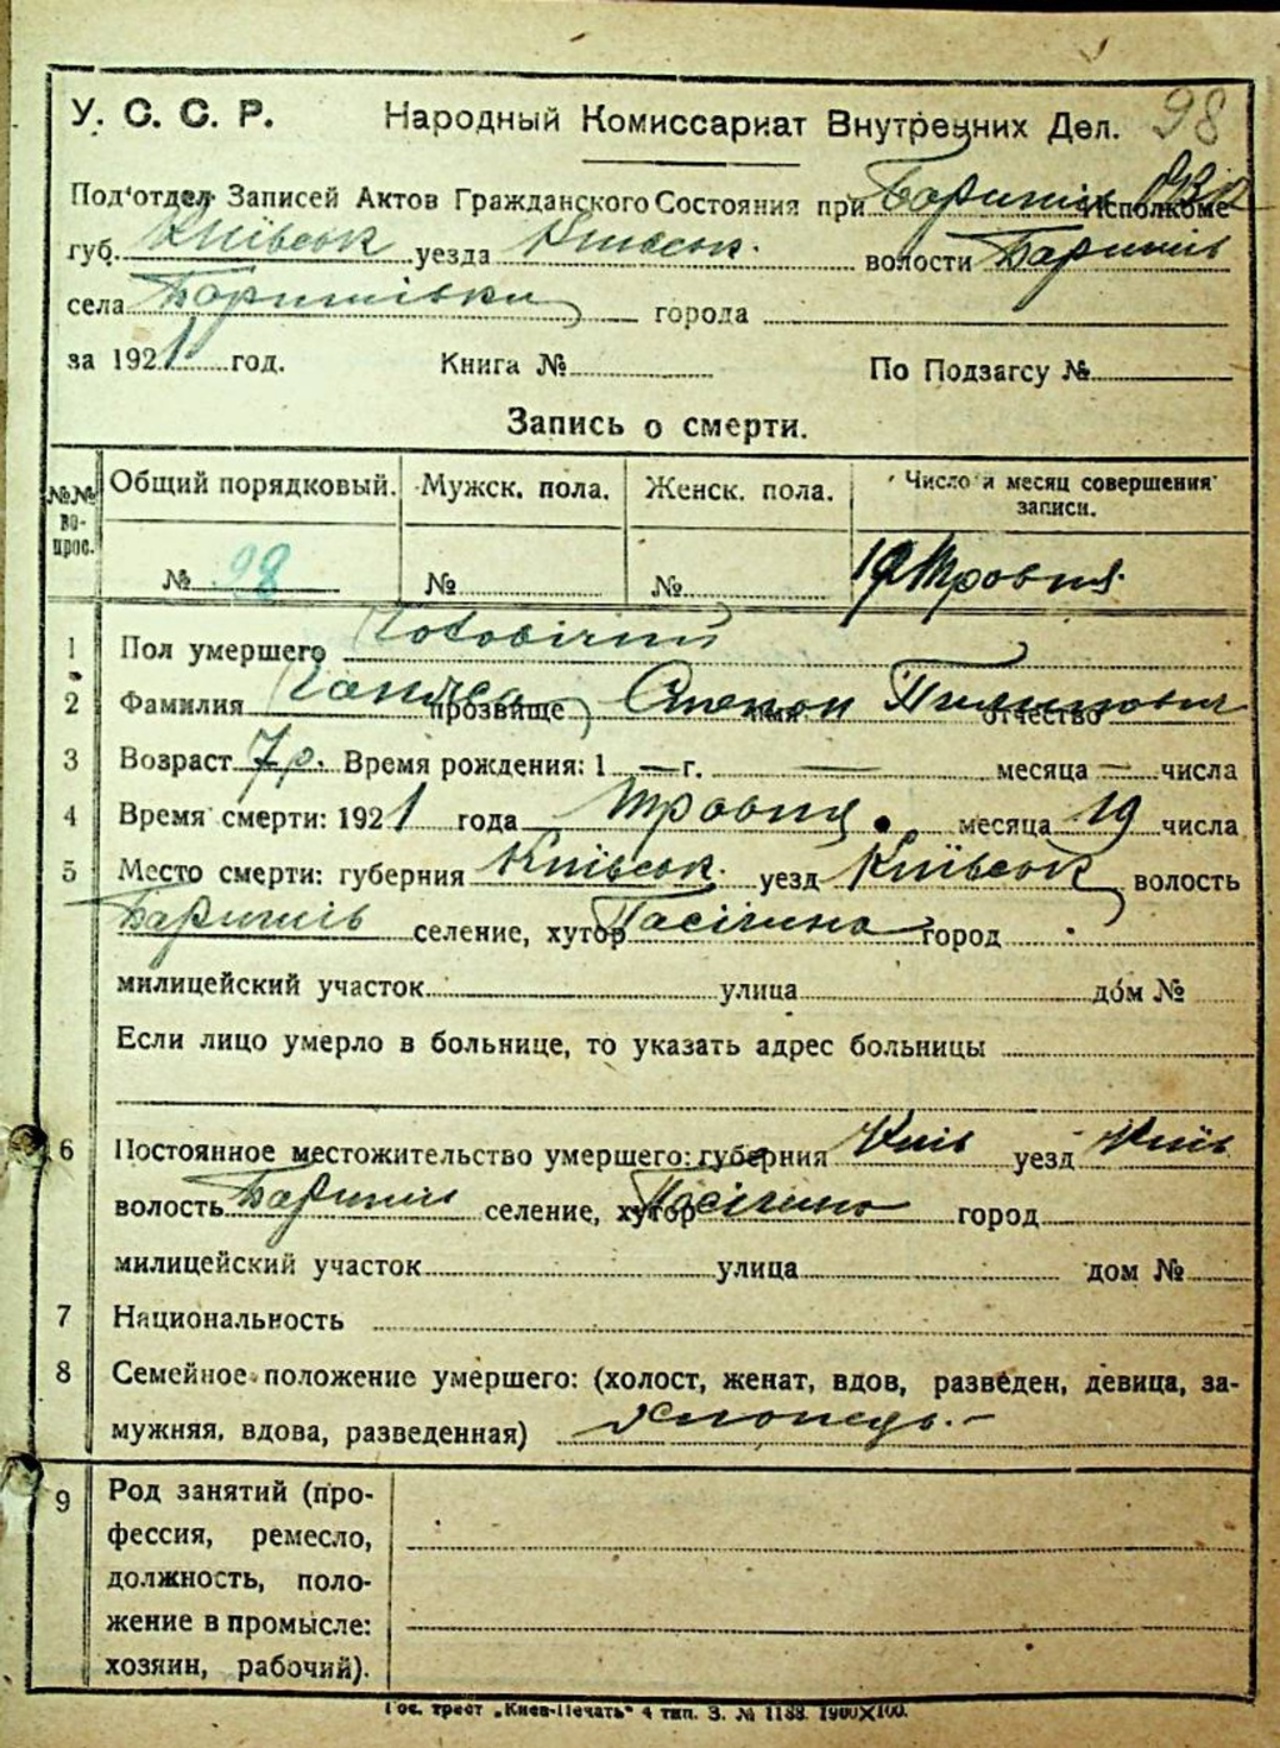 98
У. С. С. Р. Народный Комиссариат Внутренних Дел.
Под'отдел Записей Актов Гражданского Состояния при Баришів Исполкоме
губ. Київськ уезда Київськ. волости Баришів
села Баришівки города
за 1921 год. Книга № По Подзагсу №
Запись о смерти.
№№ во-прос. Общий порядковый. Мужск. пола. Женск. пола. Число и месяц совершения записи.
№ 98 № № 19 Травня
1 Пол умершего Чоловічий
2 Фамилия прозвище Степан имя Пилипович отчество
3 Возраст 7 р. Время рождения: 1 — г. — месяца — числа
4 Время смерти: 1921 года Травня. месяца 19 числа
5 Место смерти: губерния Київськ. уезд Київськ волость
Баришів селение, хутор Пасічина город
милицейский участок улица дом №
Если лицо умерло в больнице, то указать адрес больницы
6 Постоянное местожительство умершего: губерния Київ уезд Київ
волость Баришів селение, хутор Пасічина город
милицейский участок улица дом №
7 Национальность
8 Семейное положение умершего: (холост, женат, вдов, разведен, девица, за-
мужняя, вдова, разведенная) Хлопець. –
9 Род занятий (про-
фессия, ремесло,
должность, поло-
жение в промысле:
хозяин, рабочий).
Гос. трест „Киев-Печать" 4 тип. З. № 1188. 1900×100.